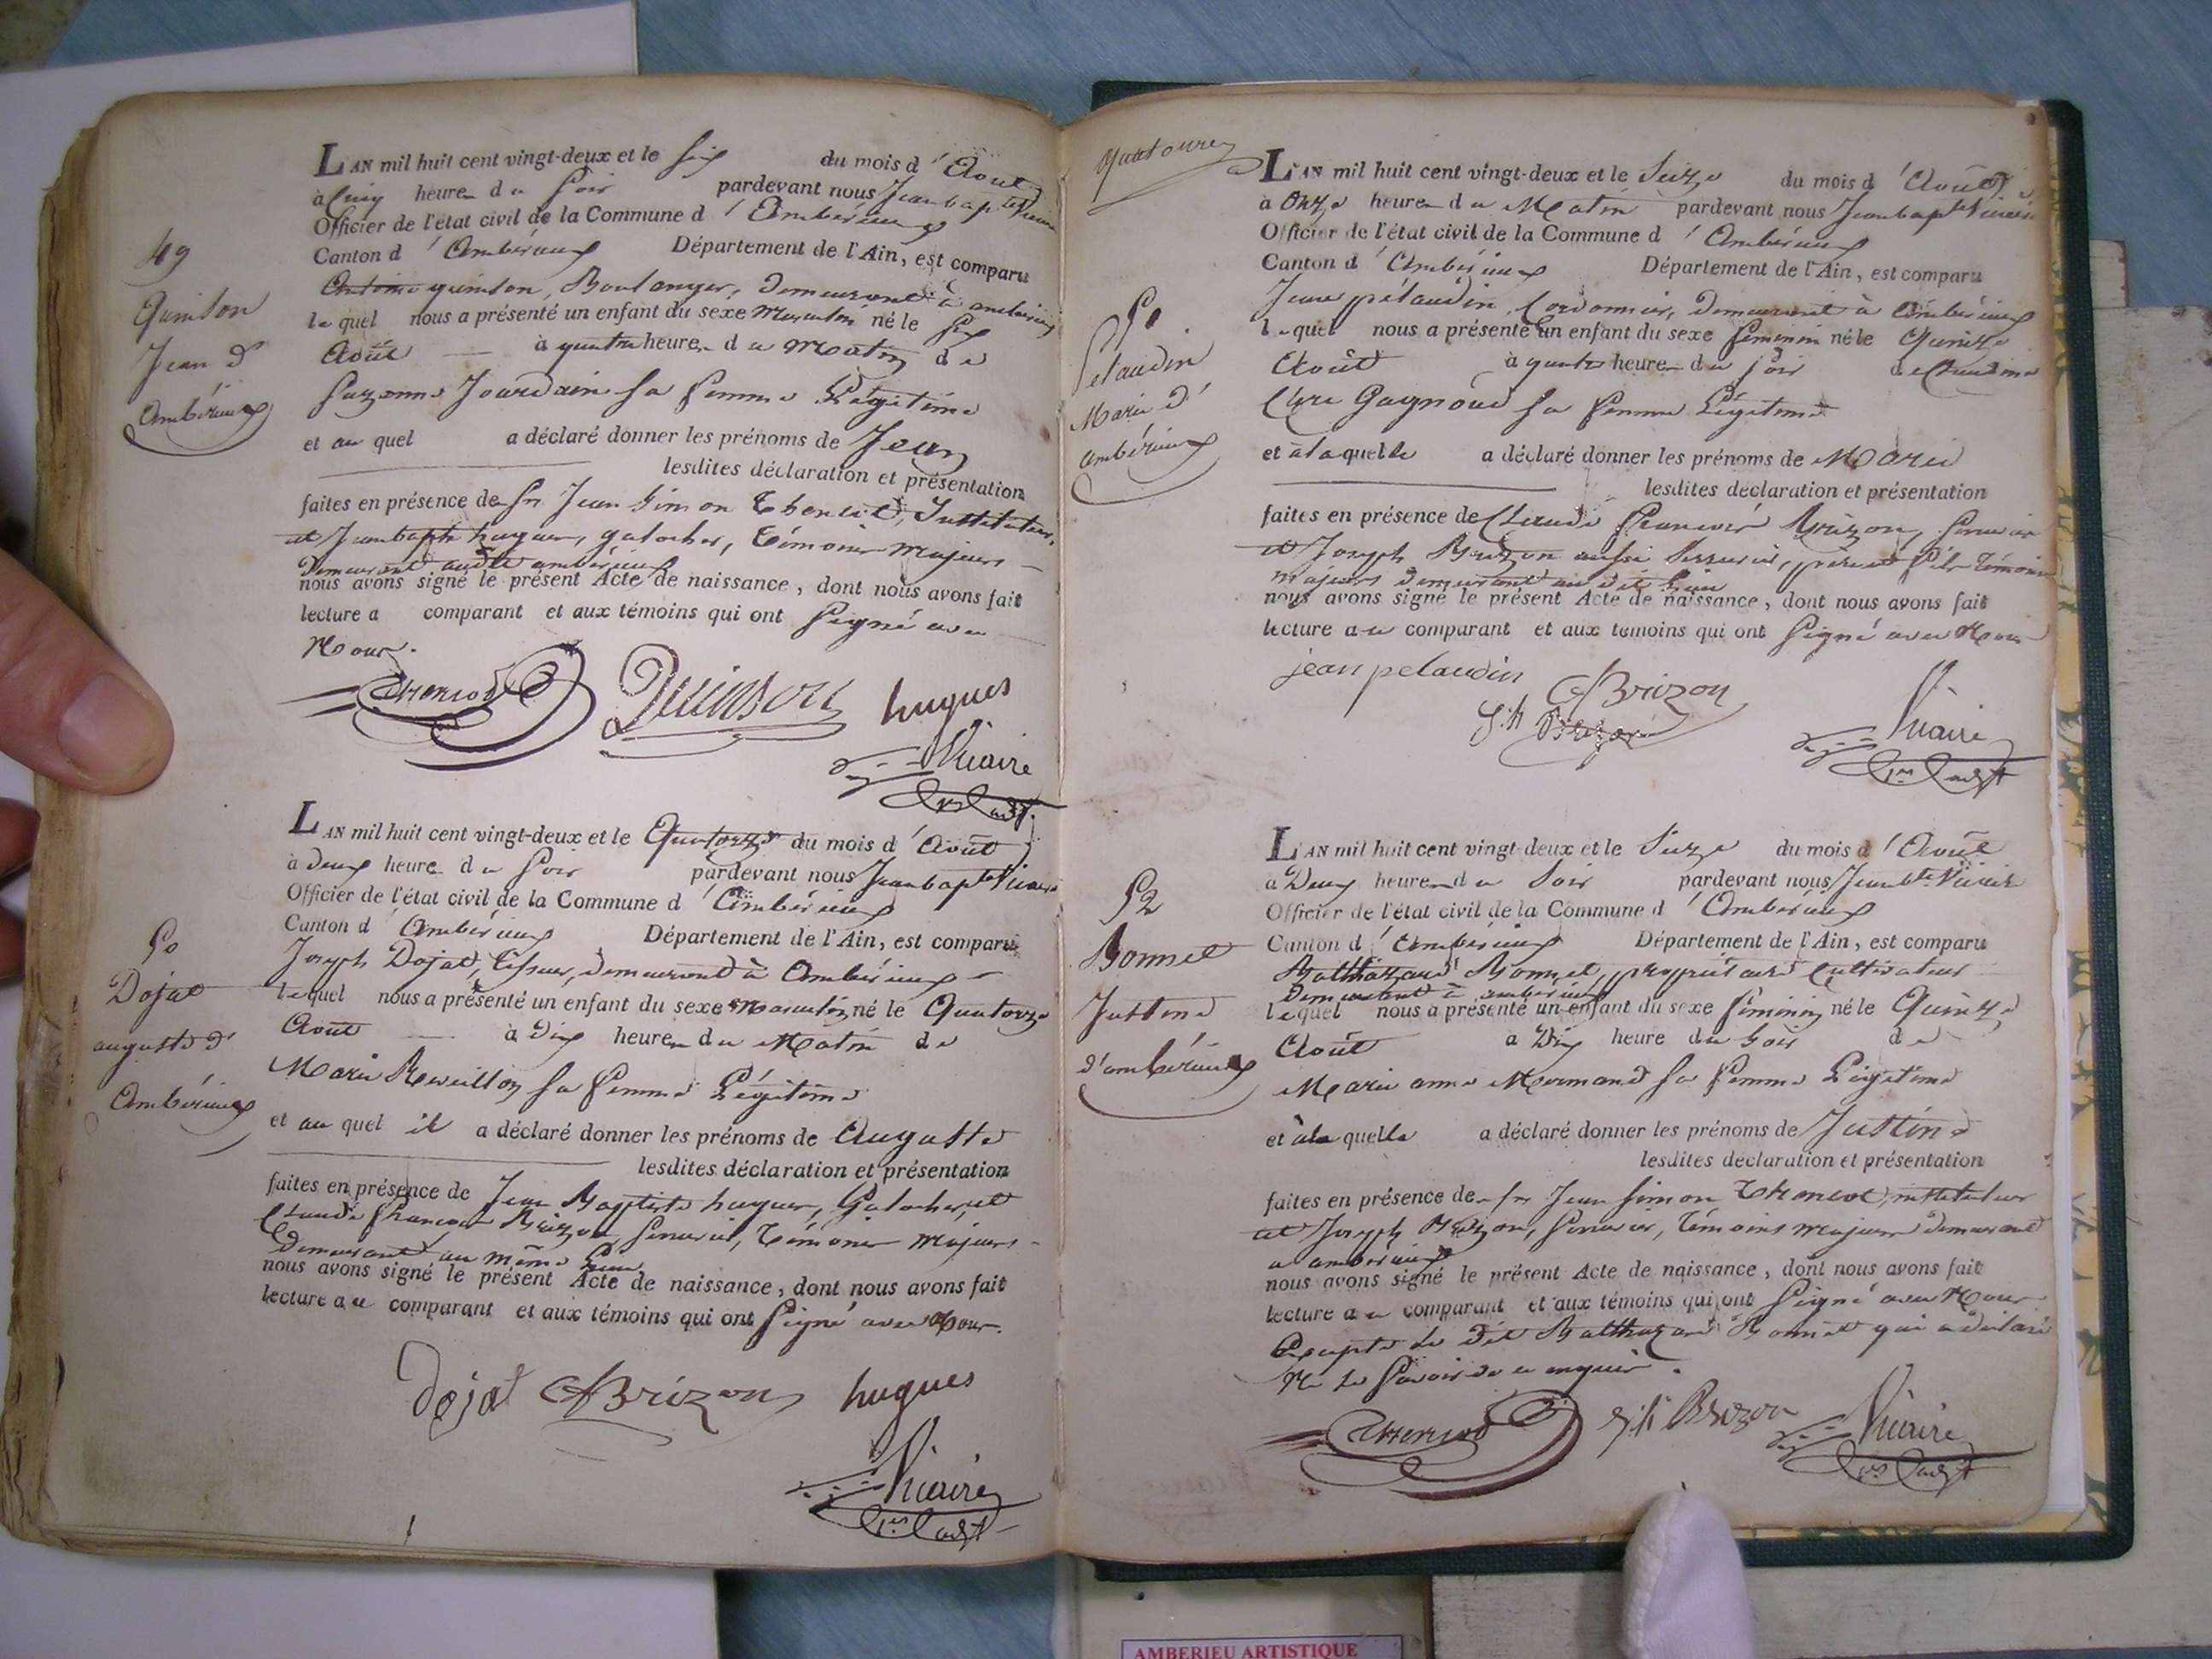 49
Quinson
Jean d'
Ambérieux
LAN mil huit cent vingt-deux et le six du mois d'Août
à Cinq heures du soir pardevant nous Jean bapte Vicaire
Officier de l'état civil de la Commune d'Ambérieux
Canton d'Ambérieux Département de l'Ain, est comparu
Antoine quinson, Boulanger, demeurant à ambérieux
lequel nous a présenté un enfant du sexe masculin né le six
Août à quatre heures du matin de
Suzanne Jourdain sa femme Légitime
et au quel a déclaré donner les prénoms de Jean
lesdites déclaration et présentation
faites en présence de Sr Jean Simon Instituteur,
et Jean bapte hugues, galocher, témoins majeurs
demeurant audit ambérieux
nous avons signé le présent Acte de naissance, dont nous avons fait
lecture a comparant et aux témoins qui ont signé avec
Nous.
Quinson hugues
Vicaire
50
Dojat
auguste d'
Ambérieux
LAN mil huit cent vingt-deux et le Quatorze du mois d'Août
à deux heure du soir pardevant nous Jean bapte Vicaire
Officier de l'état civil de la Commune d'Ambérieux
Canton d'Ambérieux Département de l'Ain, est comparu
Joseph Dojat, tisseur, demeurant à Ambérieux
lequel nous a présenté un enfant du sexe masculin né le Quatorze
Août à Dix heures du Matin de
Marie Reveillon sa femme Légitime
et au quel il a déclaré donner les prénoms de Auguste
lesdites déclaration et présentation
faites en présence de Jean Baptiste hugues, Galocher, et
Claude françois Brizon, serrurier, témoins majeurs
demeurant au même Lieu
nous avons signé le présent Acte de naissance, dont nous avons fait
lecture au comparant et aux témoins qui ont signé avec Nous.
dojat CfBrizon hugues
Vicaire
51
Pelaudin
Marie d'
ambérieux
LAN mil huit cent vingt-deux et le Seize du mois d'Août
à Onze heures du Matin pardevant nous Jean bapte Vicaire
Officier de l'état civil de la Commune d'Ambérieux
Canton d'Ambérieux Département de l'Ain, est comparu
Jean pélaudin, Cordonnier, demeurant à Ambérieux
lequel nous a présenté un enfant du sexe féminin né le Quinze
Août à quatre heures du soir de Claudine
Clere Gagnoud sa femme Légitime
et à laquelle a déclaré donner les prénoms de Marie
lesdites déclaration et présentation
faites en présence de Claude François Brizon, serrurier
et Joseph Brizon aussi serrurier, père et fils témoins
majeurs demeurant au dit Lieu
nous avons signé le présent Acte de naissance, dont nous avons fait
lecture au comparant et aux témoins qui ont signé avec Nous
jean pelaudin CfBrizon
Brizon
Vicaire
52
Bonnet
Justine
d'ambérieux
LAN mil huit cent vingt-deux et le Seize du mois d'Août
à Deux heures du Soir pardevant nous Jean bte Vicaire
Officier de l'état civil de la Commune d'Ambérieux
Canton d'Ambérieux Département de l'Ain, est comparu
Balthazard Bonnet, propriétaire Cultivateur
demeurant à ambérieux
lequel nous a présenté un enfant du sexe féminin né le Quinze
Août à Dix heure du Soir de
Marie anne Mermand sa femme Légitime
et à la quelle a déclaré donner les prénoms de Justine
lesdites déclaration et présentation
faites en présence de Sr Jean Simon instituteur
et Joseph Brizon, serrurier, témoins majeurs demeurant
a ambérieux
nous avons signé le présent Acte de naissance, dont nous avons fait
lecture au comparant et aux témoins qui ont signé avec Nous
Excepté le dit Balthazard Bonnet qui a déclaré
Ne le savoir de ce enquis.
Brizon
Vicaire
AMBERIEU ARTISTIQUE